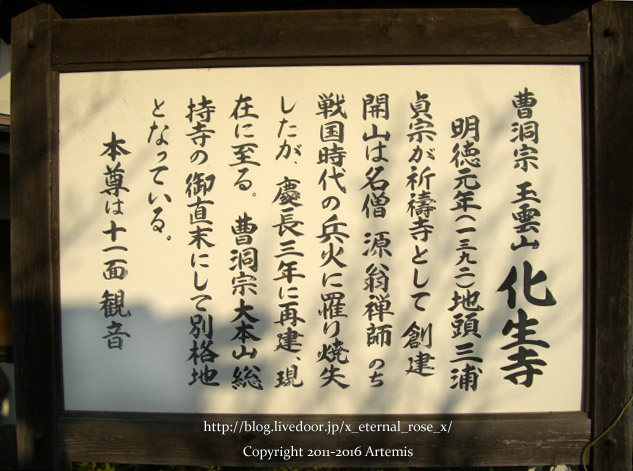 曹洞宗 玉雲山 化生寺
明徳元年(一三九二)地頭三浦
貞宗が祈禱寺として創建
開山は名僧 源翁禅師 のち
戦国時代の兵火に罹り焼失
したが、慶長三年に再建、現
在に至る。曹洞宗大本山総
持寺の御直末にして別格地
となっている。
本尊は十一面観音
http://blog.livedoor.jp/x_eternal_rose_x/
Copyright 2011-2016 Artemis